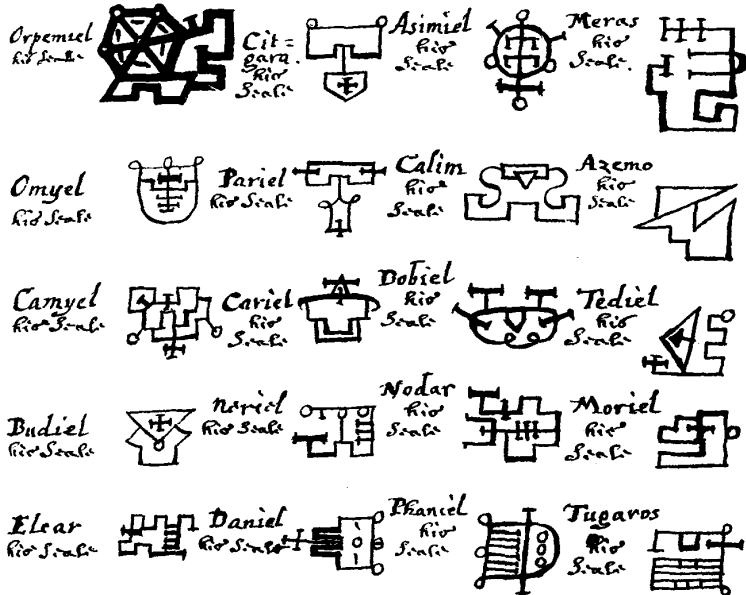 Orpemiel
his Seale
Citgara
his
Seale
Asimiel
his
Seale
Meras
his
Seale
Omyel
his Seale
Pariel
his Seale
Calim
his
Seale
Azemo
his
Seale
Camyel
his Seale
Cariel
his
Seale
Bobiel
his
Seale
Tediel
his
Seale
Budiel
his Seale
Neriel
his Seale
Nodar
his
Seale
Moriel
his
Seale
Elear
his Seale
Daniel
his Seale
Phaniel
his
Seale
Tugaros
his
Seale